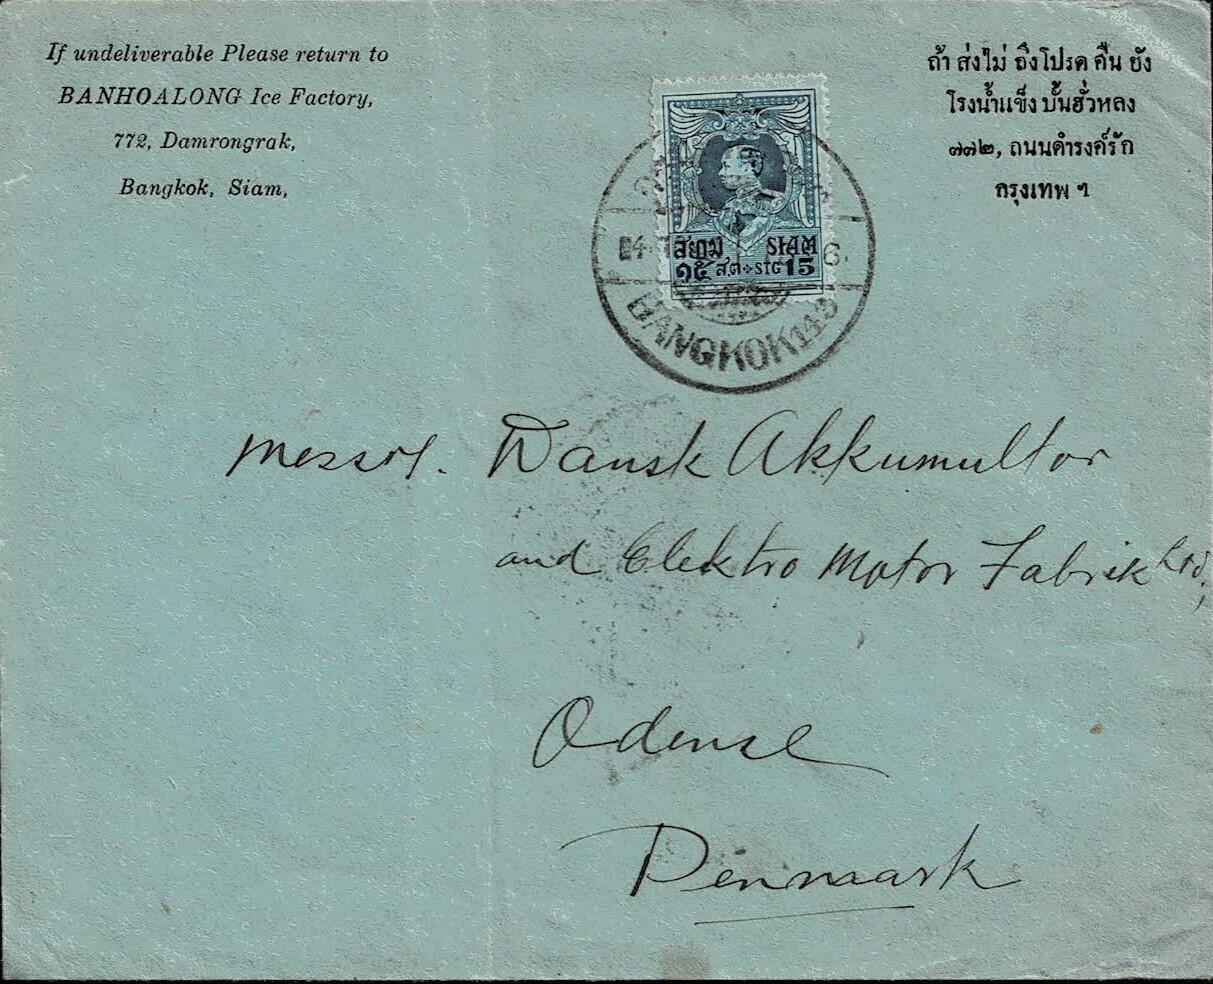 If undeliverable Please return to
BANHOALONG Ice Factory,
772, Damrongrak,
Bangkok, Siam,
ถ้า ส่งไม่ ถึงโปรด คืน ยัง
โรงน้ำแข็ง บั้นฮั่วหลง
๗๗๒, ถนนดำรงค์รัก
กรุงเทพ ฯ
สยาม SIAM
๑๕ ส.ต STG 15
BANGKOK
Messrs. Dansk Akkumultor
and Elektro Motor Fabrik Ltd,
Odense
Denmark